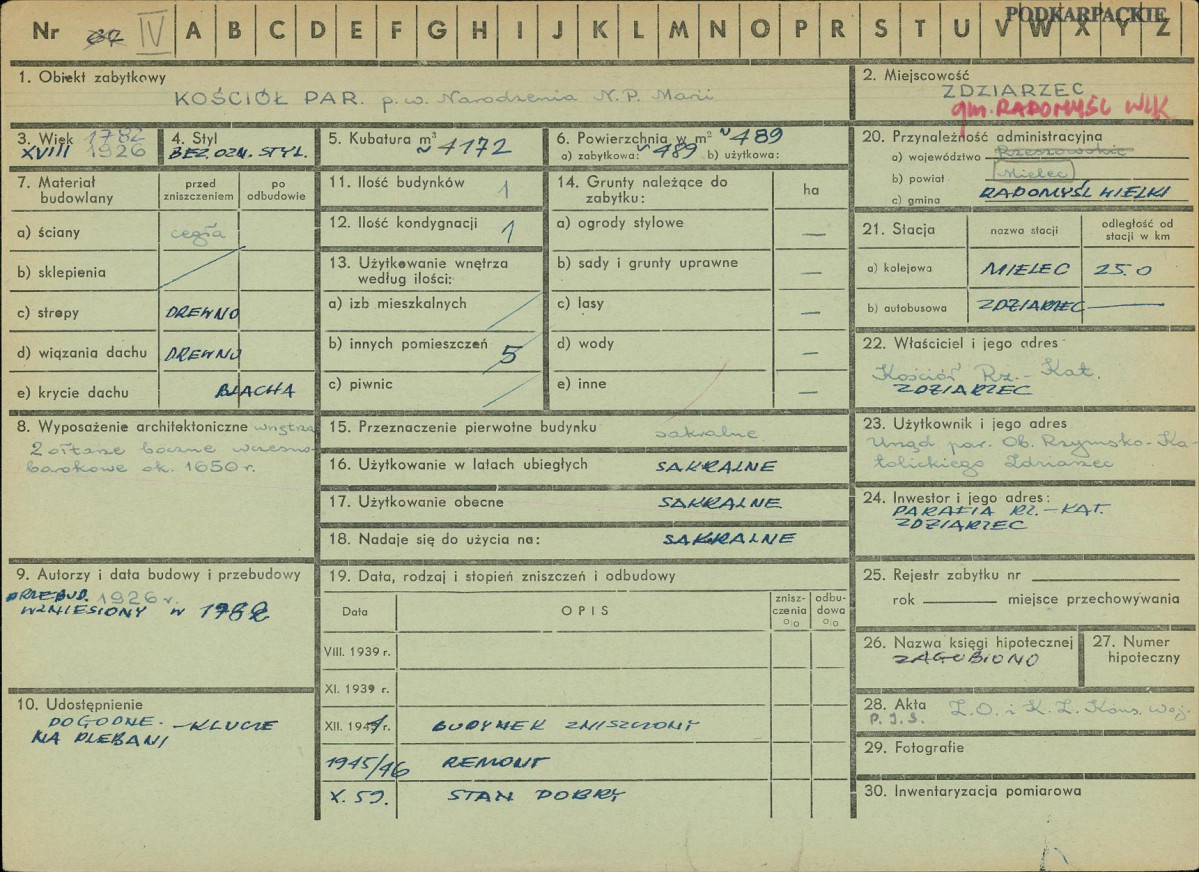 PODKARPACKIE
Nr 67 IV A B C D E F G H I J K L M N O P R S T U V W X Y Z
1. Obiekt zabytkowy
KOŚCIÓŁ PAR. p.w. Narodzenia N.P. Marii
2. Miejscowość
ZDZIARZEC
gm. RADOMYŚL WLK
3. Wiek 1782
XVIII 1926
4. Styl
BEZ. OZN. STYL.
5. Kubatura m³
~ 4172
6. Powierzchnia w m² ~ 489
a) zabytkowa: ~ 489 b) użytkowa:
7. Materiał budowlany
przed zniszczeniem
po odbudowie
a) ściany cegła
b) sklepienia
c) stropy DREWNO
d) wiązania dachu DREWNO
e) krycie dachu BLACHA
8. Wyposażenie architektoniczne wnętrza
2 ołtarze boczne wczesno-
barokowe ok. 1650 r.
9. Autorzy i data budowy i przebudowy
PRZEBUD. 1926 r.
WZNIESIONY w 1782
10. Udostępnienie
DOGODNE. – KLUCZE
NA PLEBANI
11. Ilość budynków 1
12. Ilość kondygnacji 1
13. Użytkowanie wnętrza
według ilości:
a) izb mieszkalnych
b) innych pomieszczeń 5
c) piwnic
14. Grunty należące do
zabytku:
ha
a) ogrody stylowe —
b) sady i grunty uprawne —
c) lasy —
d) wody —
e) inne —
15. Przeznaczenie pierwotne budynku sakralne
16. Użytkowanie w latach ubiegłych SAKRALNE
17. Użytkowanie obecne SAKRALNE
18. Nadaje się do użycia na: SAKRALNE
19. Data, rodzaj i stopień zniszczeń i odbudowy
Data
OPIS
znisz-
czenia
%
odbu-
dowa
%
VIII. 1939 r.
XI. 1939 r.
XII. 1944 r. BUDYNEK ZNISZCZONY
1945/46 REMONT
X. 59. STAN DOBRY
20. Przynależność administracyjna
a) województwo Rzeszowskie
b) powiat Mielec
c) gmina RADOMYŚL WIELKI
21. Stacja
nazwa stacji
odległość od
stacji w km
a) kolejowa MIELEC 25.0
b) autobusowa ZDZIARZEC —
22. Właściciel i jego adres
Kościół Rz.-Kat.
ZDZIARZEC
23. Użytkownik i jego adres
Urząd par. Ob. Rzymsko-Ka-
tolickiego Zdziarzec
24. Inwestor i jego adres:
PARAFIA RZ.-KAT.
ZDZIARZEC
25. Rejestr zabytku nr
rok miejsce przechowywania
26. Nazwa księgi hipotecznej
ZAGUBIONO
27. Numer
hipoteczny
28. Akta Z.O. i K.Z. Kons. Woj.
P.I.S.
29. Fotografie
30. Inwentaryzacja pomiarowa